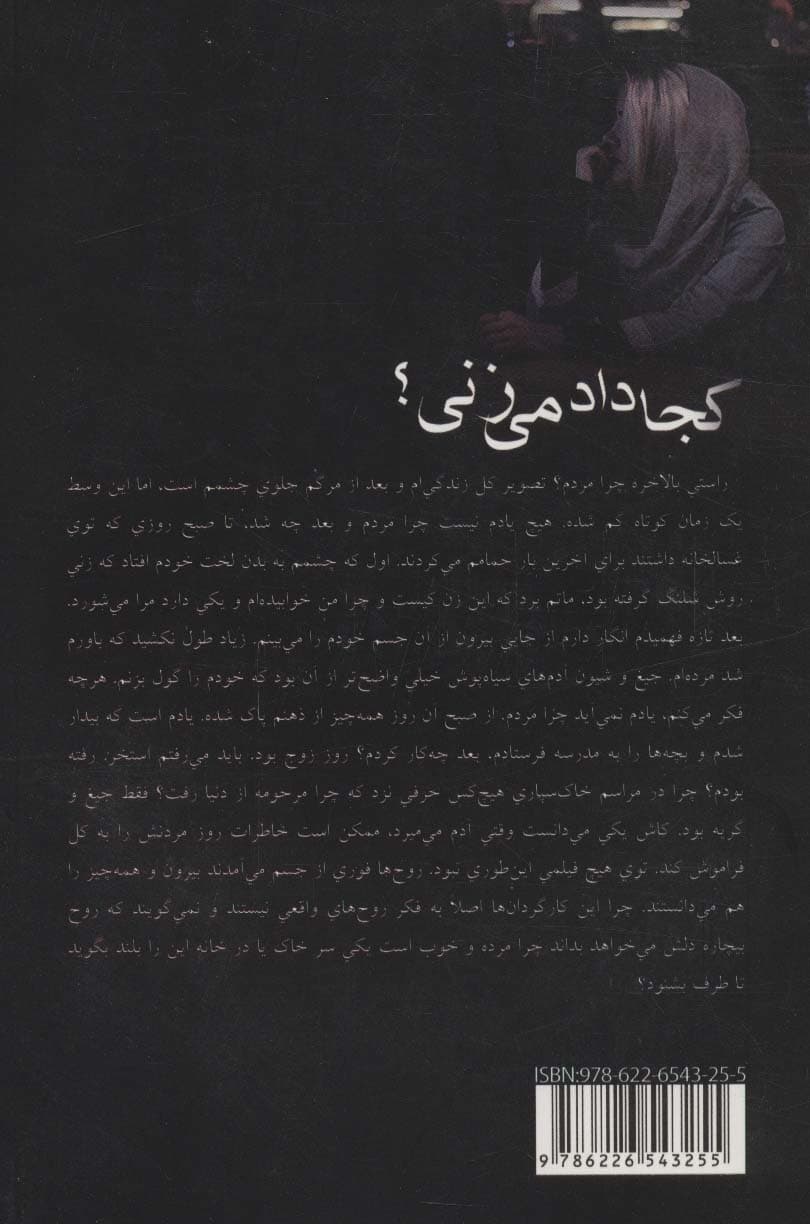 کجا داد می‌زنی؟
راستي بالاخره چرا مردم؟ تصوير کل زندگي‌ام و بعد از مرگم جلوي چشمم است، اما اين وسط
يک زمان کوتاه گم شده. هيچ يادم نيست چرا مردم و بعد چه شد، تا صبح روزي که توي
غسالخانه داشتند براي آخرين بار حمامم مي‌کردند. اول که چشمم به بدن لخت خودم افتاد که زني
روش شلنگ گرفته بود، ماتم برد که اين زن کيست و چرا من خوابيده‌ام و يکي دارد مرا مي‌شورد.
بعد تازه فهميدم انگار دارم از جايي بيرون از آن جسم خودم را مي‌بينم. زياد طول نکشيد که باورم
شد مرده‌ام. جيغ و شيون آدم‌هاي سياه‌پوش خيلي واضح‌تر از آن بود که خودم را گول بزنم. هرچه
فکر مي‌کنم، يادم نمي‌آيد چرا مردم. از صبح آن روز همه‌چيز از ذهنم پاک شده. يادم است که بيدار
شدم و بچه‌ها را به مدرسه فرستادم. بعد چه‌کار کردم؟ روز زوج بود. بايد مي‌رفتم استخر. رفته
بودم؟ چرا در مراسم خاک‌سپاري هيچ‌کس حرفي نزد که چرا مرحومه از دنيا رفت؟ فقط جيغ و
گريه بود. کاش يکي مي‌دانست وقتي آدم مي‌ميرد، ممکن است خاطرات روز مردنش را به کل
فراموش کند. توي هيچ فيلمي اين‌طوري نبود. روح‌ها فوري از جسم مي‌آمدند بيرون و همه‌چيز را
هم مي‌دانستند. چرا اين کارگردان‌ها اصلاً به فکر روح‌هاي واقعي نيستند و نمي‌گويند که روح
بيچاره دلش مي‌خواهد بداند چرا مرده و خوب است يکي سر خاک يا در خانه اين را بلند بگويد
تا طرف بشنود؟
ISBN:978-622-6543-25-5
9 786226 543255